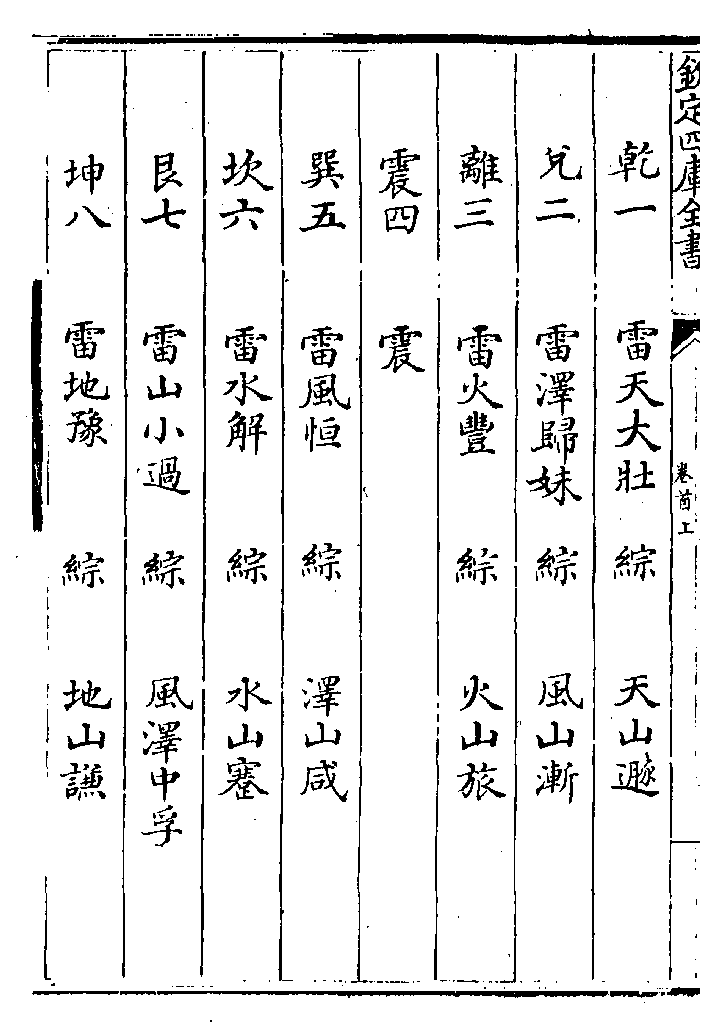 欽定四庫全書
卷首上
乾一 雷天大壯 綜 天山遯
兌二 雷澤歸妹 綜 風山漸
離三 雷火豐 綜 火山旅
震四 震
巽五 雷風恒 綜 澤山咸
坎六 雷水解 綜 水山蹇
艮七 雷山小過 綜 風澤中孚
坤八 雷地豫 綜 地山謙